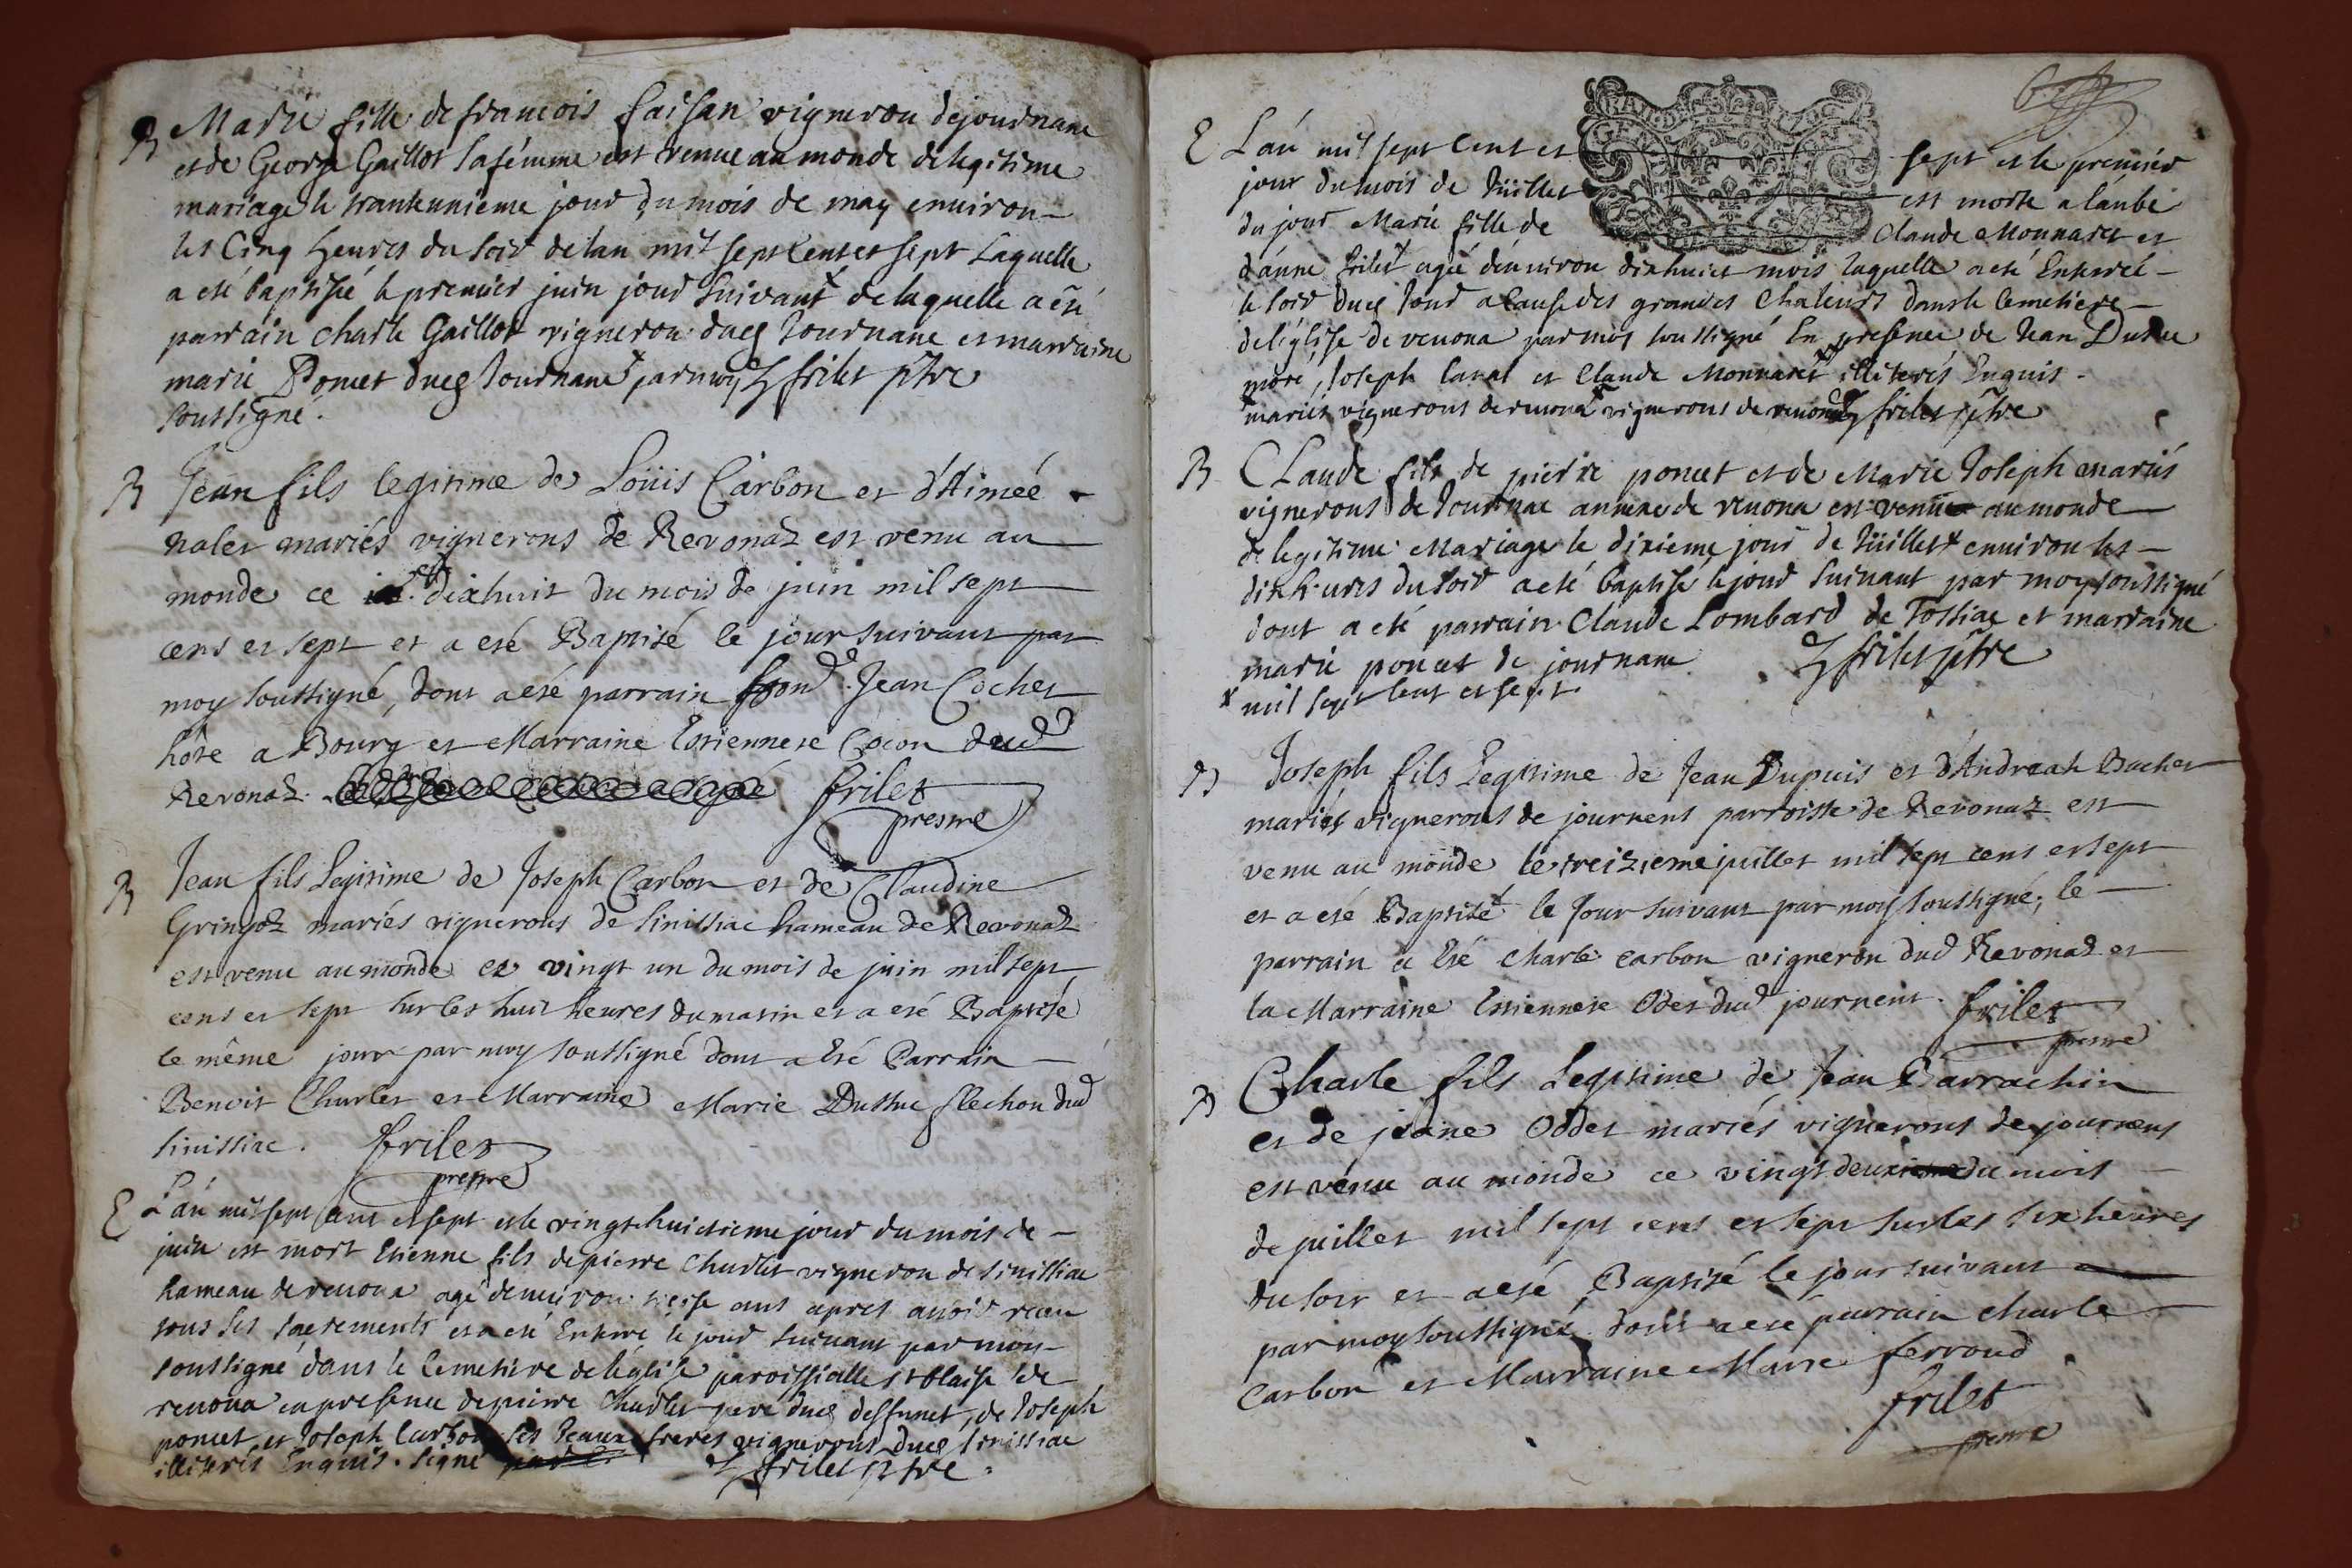 B Marie fille de francois faisan vigneron de journanc
et de George Gaillot sa fémme est venue au monde de legitime
mariage le tranteunieme jour du mois de may environ
les Cinq heures du soir de lan mil sept Cent et sept Laquelle
a eté baptisée le premier juin jour suivant de laquelle a eté
parrain charle Gaillot vigneron dud Journanc et marraine
marie Poncet dud Journanc par moy frilet ptre
soussigné.
B Jean fils legitime de Loüis Carbon et d'Aimeé
nalet mariés vignerons de Revonaz est venu au
monde ce dixhuit du mois de juin mil sept
cens et sept et a eté Baptisé le jour suivant par
moy soussigné, dont a eté parrain Jean Cochet
hôte a Bourg et Marraine Estiennete Cocon dud
Revonaz. frilet
prestre
B Jean fils Legitime de Joseph Carbon et de Claudine
Gringoz mariés vignerons de Sinissiac hameau de Revonaz
est venu au monde ce vingt un du mois de juin mil sept
cens et sept sur les huit heures du matin et a eté Baptisé
le même jour par moy soussigné dont a eté Parrain
Benoit Charlet et Marraine Marie flechon dud
Sinissiac. frilet
prestre
E L'an mil sept Cent et sept et le vingt huictieme jour du mois de
juin est mort Etienne fils de pierre Charlet vigneron de Sinissiac
hameau de revona agé denviron ans apres avoir receu
tous ses sacrements et a eté Enterré le jour suivant par moy
soussigné dans le Cemetiere de léglise paroissialle st blaise de
revona en presence de pierre Charlet pere dud deffunct, de Joseph
poncet et Joseph Carbon ses beaux freres vignerons dud Sinissiac
illiterés Enquis. Signé frilet ptre.
E L'an mil sept Cent et sept et le premier
jour du mois de Jüillet est morte a laube
du jour Marie fille de Claude Monnaret et
d'anne frilet ageé d'énviron dixhuict mois laquelle a eté Enterreé
le soir dud jour a Cause des grandes Chaleurs dans le Cemetiere
de léglise de revona par moy soussigné En presence de Jean
Joseph Caval et Claude Monnaret illiterés Enquis.
mariés vignerons de revona vignerons de revona frilet ptre
B CLaude fils de pierre poncet et de Marie Joseph mariés
vignerons de Journac annexe de revona est venu au monde
de legitime Mariage le dixieme jour de Jüillet x environ les
dix heures du soir a eté baptisé le jour suivant par moy soussigné
dont a eté parrain Claude Lombard de Tossiac et marraine
marie poncet de journanc frilet ptre
x mil sept Cent et sept.
B Joseph fils Legitime de Jean Dupuis et d'Andreah Bochet
mariés vignerons de journens parroisse de Revonaz est
venu au monde le treizieme juillet mil sept cens et sept
et a eté Baptisé le jour suivant par moy soussigné, le
parrain a eté Charle carbon vigneron dud Revonaz et
la Marraine Estiennete Odet dud journent. frilet
prestre
B Charle fils Legitime de Jean Barrachin
et de jeanne Oddet mariés vignerons de journens
est venu au monde ce vingt deuxieme du mois
de juillet mil sept cens et sept sur les six heures
du soir et a eté Baptisé le jour suivant
par moy soussigné, dont a eté parrain charle
carbon et Marraine Marie ferroud
frilet
prestre